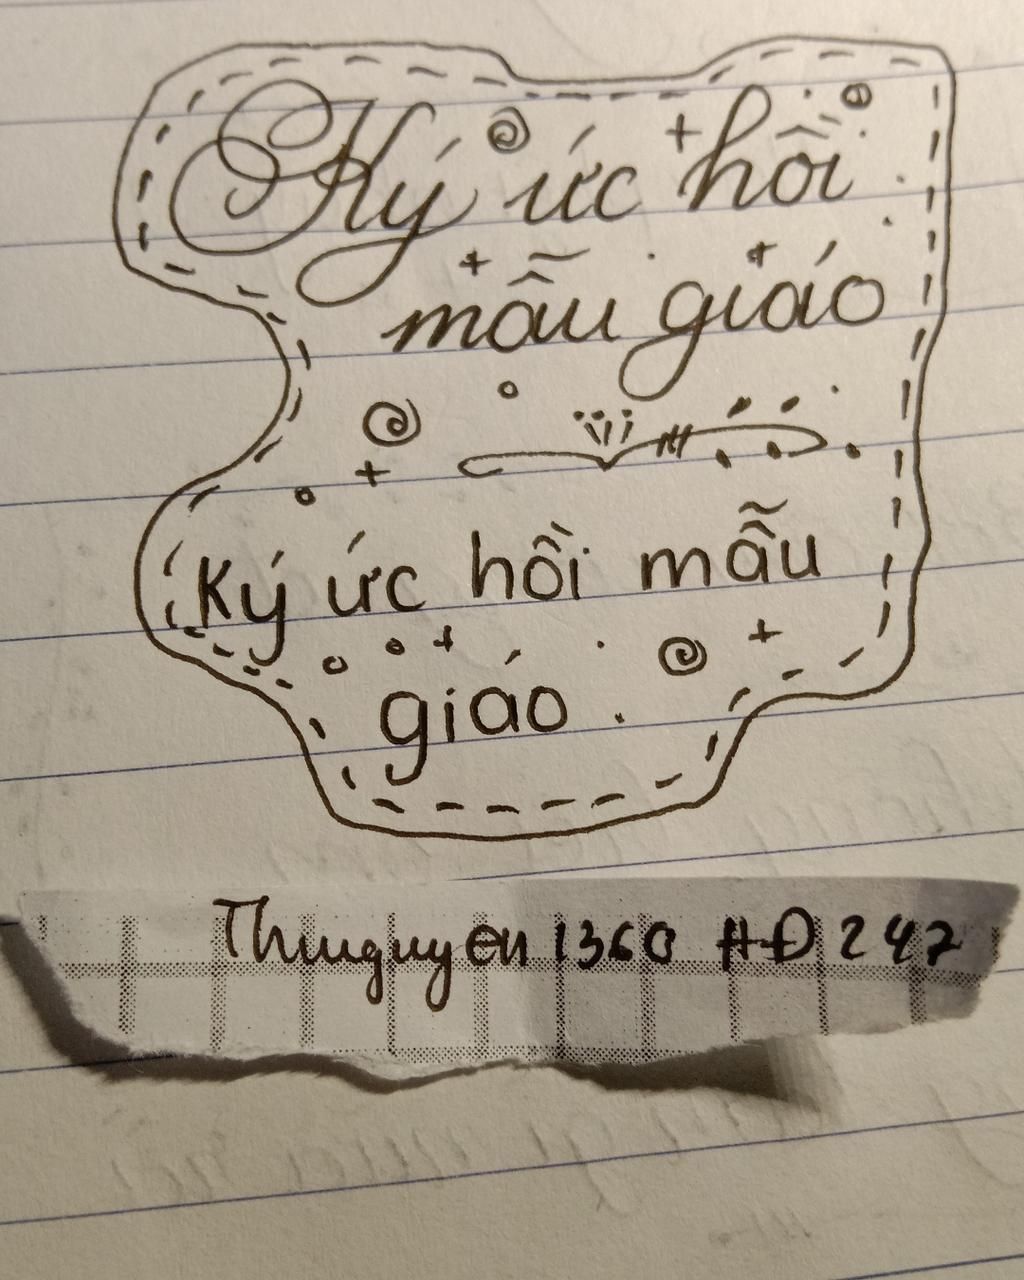 Ký ức hồi
mẫu giáo
Ký ức hồi mẫu
giáo.
Thuuguyen 1360 HĐ 247